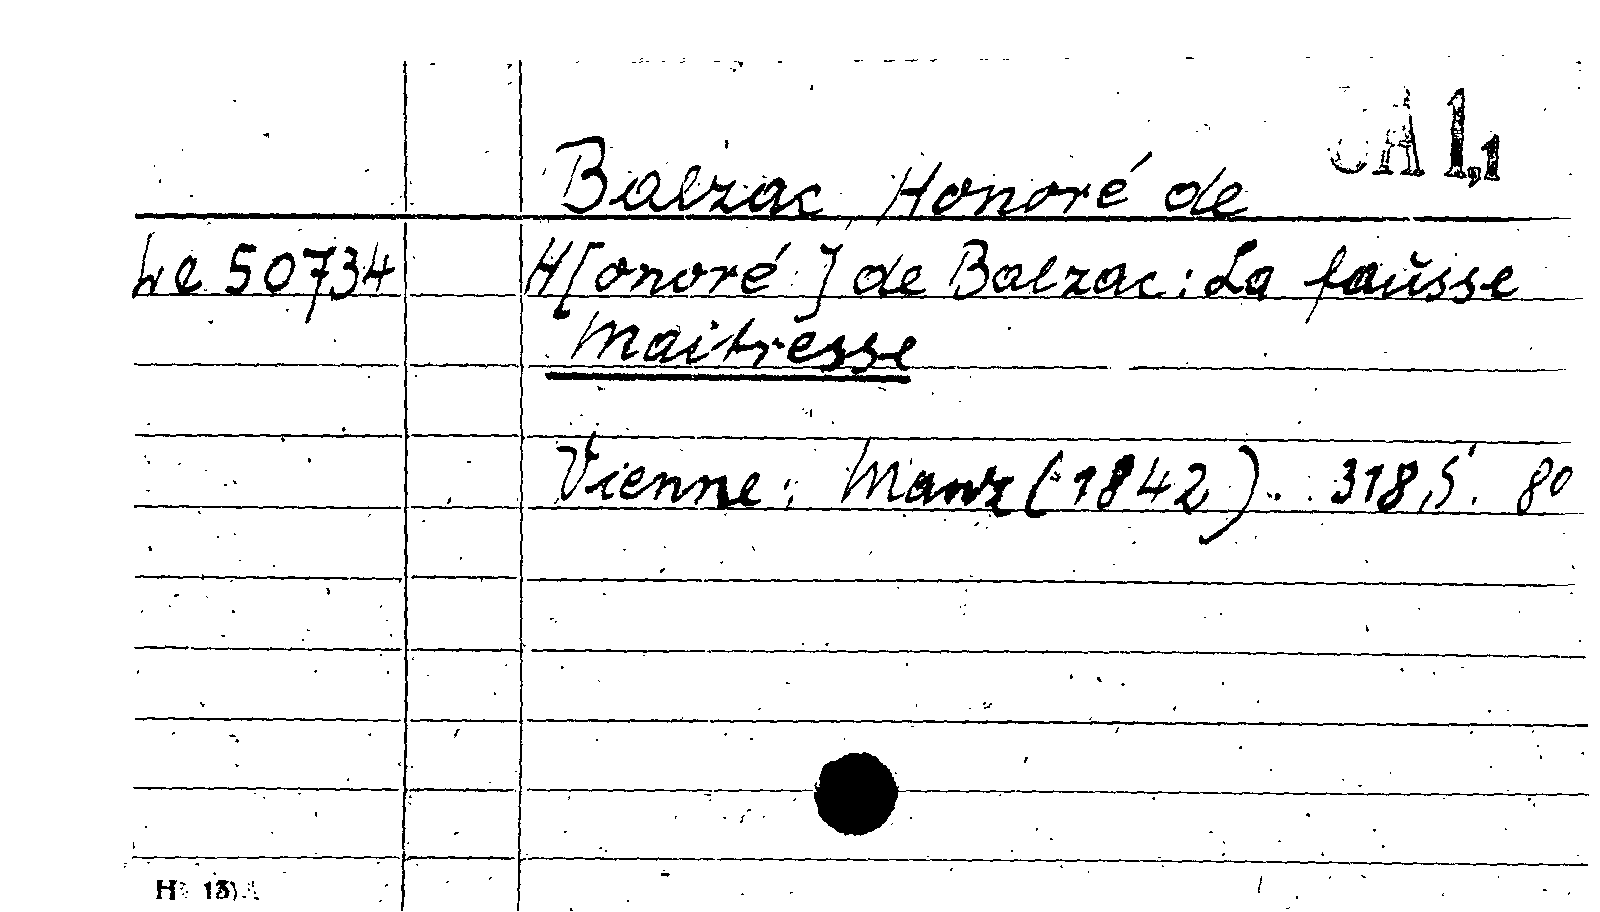 CA 1,1
Balzac, Honoré de
Le 50734 H[onoré] de Balzac: La faŭsse
Maitresse
Vienne: Manz (1842). 318 S. 8º